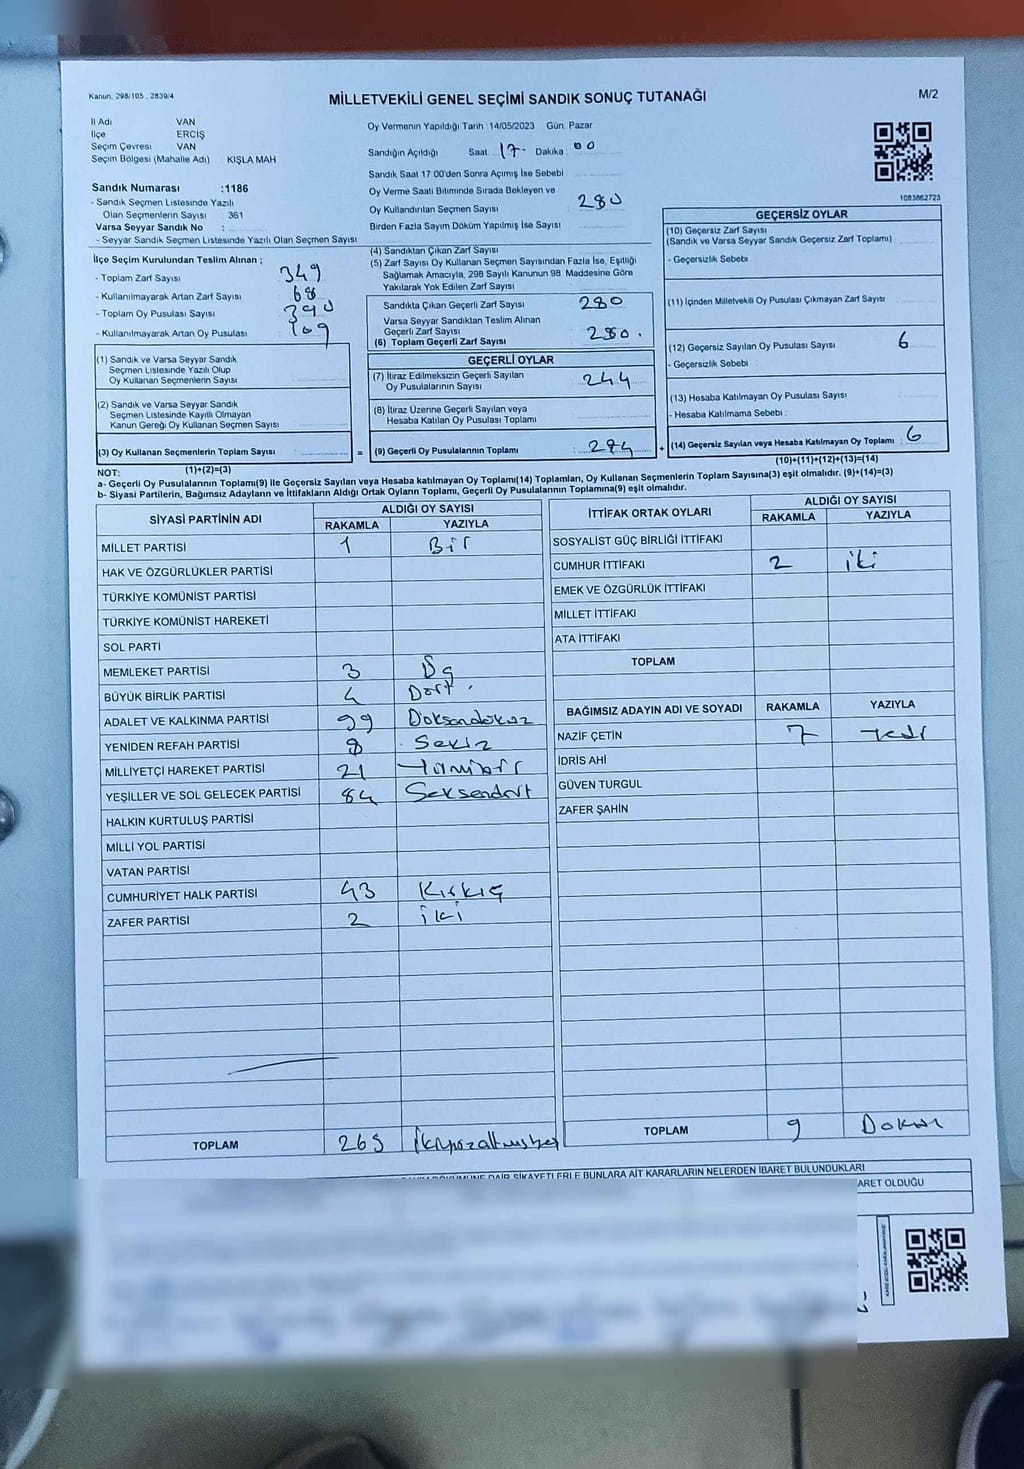 Kanun, 298/105 , 2839/4
MİLLETVEKİLİ GENEL SEÇİMİ SANDIK SONUÇ TUTANAĞI
M/2
İl Adı VAN
İlçe ERCİŞ
Seçim Çevresi VAN
Seçim Bölgesi (Mahalle Adı) KIŞLA MAH
Sandık Numarası :1186
- Sandık Seçmen Listesinde Yazılı
Olan Seçmenlerin Sayısı : 361
Varsa Seyyar Sandık No :
- Seyyar Sandık Seçmen Listesinde Yazılı Olan Seçmen Sayısı
Oy Vermenin Yapıldığı Tarih : 14/05/2023 Gün: Pazar
Sandığın Açıldığı Saat 17 Dakika : 00
Sandık Saat 17.00'den Sonra Açımış İse Sebebi
Oy Verme Saati Bitiminde Sırada Bekleyen ve
Oy Kullandırılan Seçmen Sayısı 280
Birden Fazla Sayım Döküm Yapılmış İse Sayısı
1083862723
İlçe Seçim Kurulundan Teslim Alınan ;
- Toplam Zarf Sayısı 349
- Kullanılmayarak Artan Zarf Sayısı 68
- Toplam Oy Pusulası Sayısı 390
- Kullanılmayarak Artan Oy Pusulası 109
(1) Sandık ve Varsa Seyyar Sandık
Seçmen Listesinde Yazılı Olup
Oy Kullanan Seçmenlerin Sayısı :
(2) Sandık ve Varsa Seyyar Sandık
Seçmen Listesinde Kayıtlı Olmayan
Kanun Gereği Oy Kullanan Seçmen Sayısı :
(3) Oy Kullanan Seçmenlerin Toplam Sayısı :
(1)+(2)=(3)
(4) Sandıktan Çıkan Zarf Sayısı
(5) Zarf Sayısı Oy Kullanan Seçmen Sayısından Fazla İse, Eşitliği
Sağlamak Amacıyla, 298 Sayılı Kanunun 98. Maddesine Göre
Yakılarak Yok Edilen Zarf Sayısı
Sandıkta Çıkan Geçerli Zarf Sayısı 280
Varsa Seyyar Sandıktan Teslim Alınan
Geçerli Zarf Sayısı
(6) Toplam Geçerli Zarf Sayısı 280.
GEÇERLİ OYLAR
(7) İtiraz Edilmeksizin Geçerli Sayılan
Oy Pusulalarının Sayısı 244
(8) İtiraz Üzerine Geçerli Sayılan veya
Hesaba Katılan Oy Pusulası Toplamı
= (9) Geçerli Oy Pusulalarının Toplamı : 274
GEÇERSİZ OYLAR
(10) Geçersiz Zarf Sayısı
(Sandık ve Varsa Seyyar Sandık Geçersiz Zarf Toplamı)
- Geçersizlik Sebebi
(11) İçinden Milletvekili Oy Pusulası Çıkmayan Zarf Sayısı
(12) Geçersiz Sayılan Oy Pusulası Sayısı 6
- Geçersizlik Sebebi :
(13) Hesaba Katılmayan Oy Pusulası Sayısı
- Hesaba Katılmama Sebebi :
+ (14) Geçersiz Sayılan veya Hesaba Katılmayan Oy Toplamı : 6
(10)+(11)+(12)+(13)=(14)
NOT:
a- Geçerli Oy Pusulalarının Toplamı(9) ile Geçersiz Sayılan veya Hesaba katılmayan Oy Toplamı(14) Toplamları, Oy Kullanan Seçmenlerin Toplam Sayısına(3) eşit olmalıdır. (9)+(14)=(3)
b- Siyasi Partilerin, Bağımsız Adayların ve İttifakların Aldığı Ortak Oyların Toplamı, Geçerli Oy Pusulalarının Toplamına(9) eşit olmalıdır.
SİYASİ PARTİNİN ADI ALDIĞI OY SAYISI
RAKAMLA YAZIYLA
MİLLET PARTİSİ 1 Bir
HAK VE ÖZGÜRLÜKLER PARTİSİ
TÜRKİYE KOMÜNİST PARTİSİ
TÜRKİYE KOMÜNİST HAREKETİ
SOL PARTİ
MEMLEKET PARTİSİ 3 Üç
BÜYÜK BİRLİK PARTİSİ 4 Dört
ADALET VE KALKINMA PARTİSİ 99 Doksandokuz
YENİDEN REFAH PARTİSİ 8 Sekiz
MİLLİYETÇİ HAREKET PARTİSİ 21 Yirmibir
YEŞİLLER VE SOL GELECEK PARTİSİ 84 Seksendört
HALKIN KURTULUŞ PARTİSİ
MİLLİ YOL PARTİSİ
VATAN PARTİSİ
CUMHURİYET HALK PARTİSİ 43 Kırküç
ZAFER PARTİSİ 2 iki
TOPLAM 265 İkiyüzaltmışbeş
İTTİFAK ORTAK OYLARI ALDIĞI OY SAYISI
RAKAMLA YAZIYLA
SOSYALİST GÜÇ BİRLİĞİ İTTİFAKI
CUMHUR İTTİFAKI 2 iki
EMEK VE ÖZGÜRLÜK İTTİFAKI
MİLLET İTTİFAKI
ATA İTTİFAKI
TOPLAM
BAĞIMSIZ ADAYIN ADI VE SOYADI RAKAMLA YAZIYLA
NAZİF ÇETİN 7 Yedi
İDRİS AHİ
GÜVEN TURGUL
ZAFER ŞAHİN
TOPLAM 9 Dokuz
DÖKÜMÜNE DAİR ŞİKAYETLERLE BUNLARA AİT KARARLARIN NELERDEN İBARET BULUNDUKLARI
ARET OLDUĞU